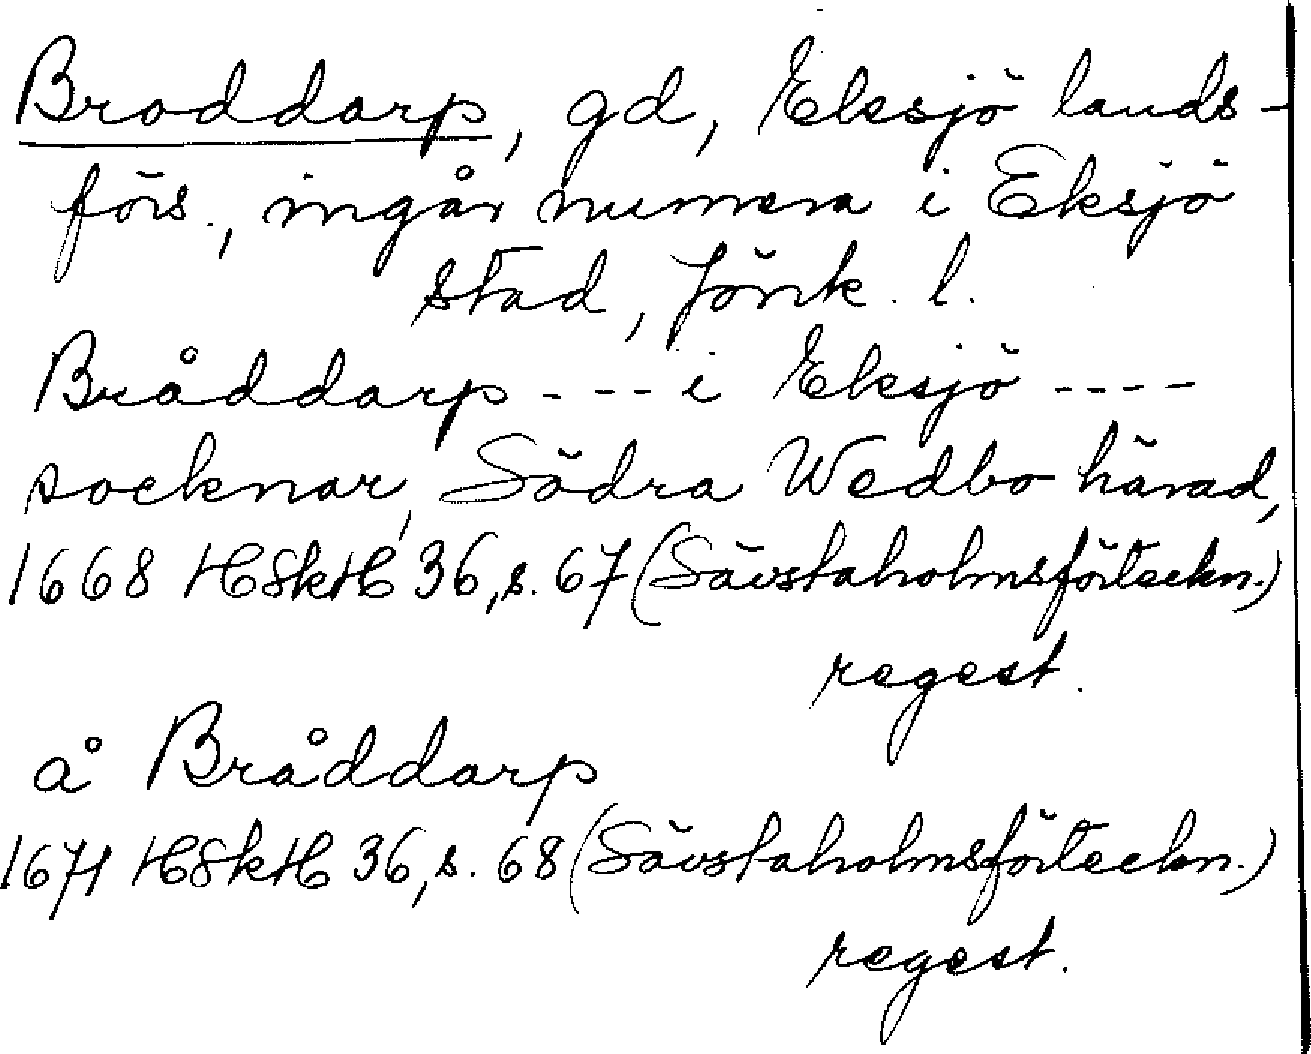 Broddarp, gd, Eksjö lands-
förs., ingår numera i Eksjö
stad, Jönk. l.
Bråddarp --- i Eksjö ----
socknar, Södra Wedbo härad,
1668 HSkH 36, s. 67 (Sävstaholmsförteckn.)
regest.
å Bråddarp
1671 HSkH 36, s. 68 (Sävstaholmsförteckn.)
regest.